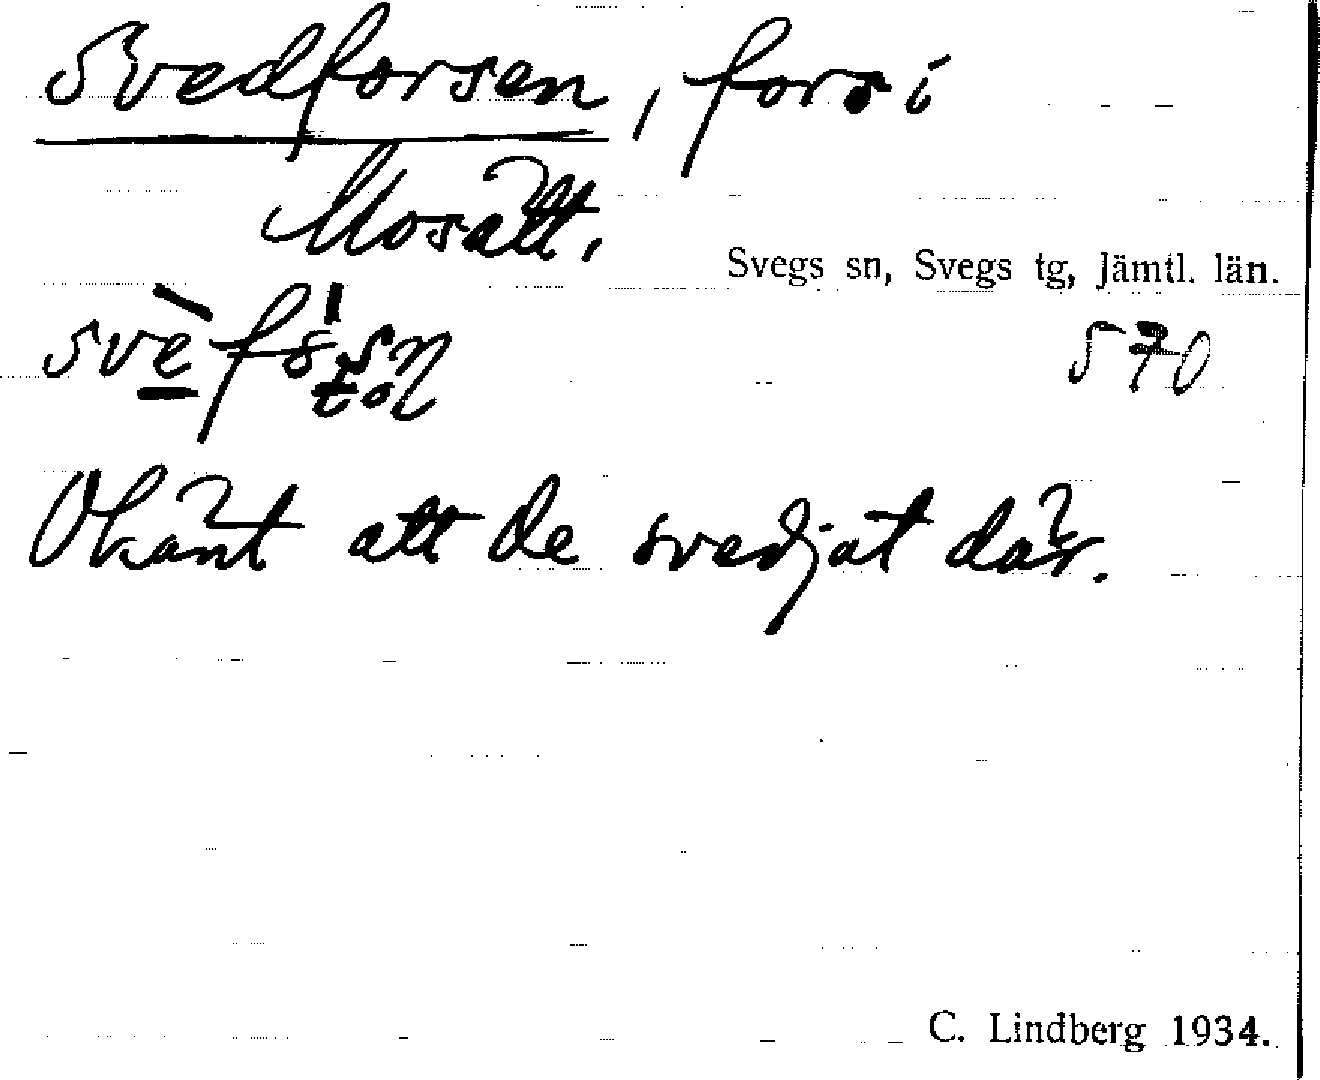 Svedforsen, fors i
Mosätt.
Svegs sn, Svegs tg, Jämtl. län.
570
Okänt att de svedjat där.
C. Lindberg 1934.